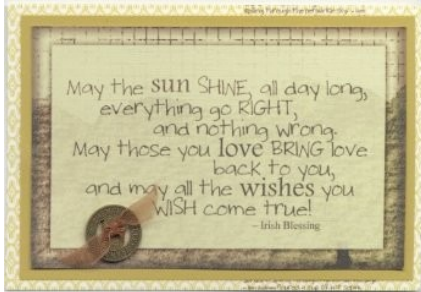 May the sun SHINE, all day long,
everything go RIGHT,
and nothing wrong.
May those you love BRING love
back to you,
and may all the wishes you
WISH come true!
– Irish Blessing